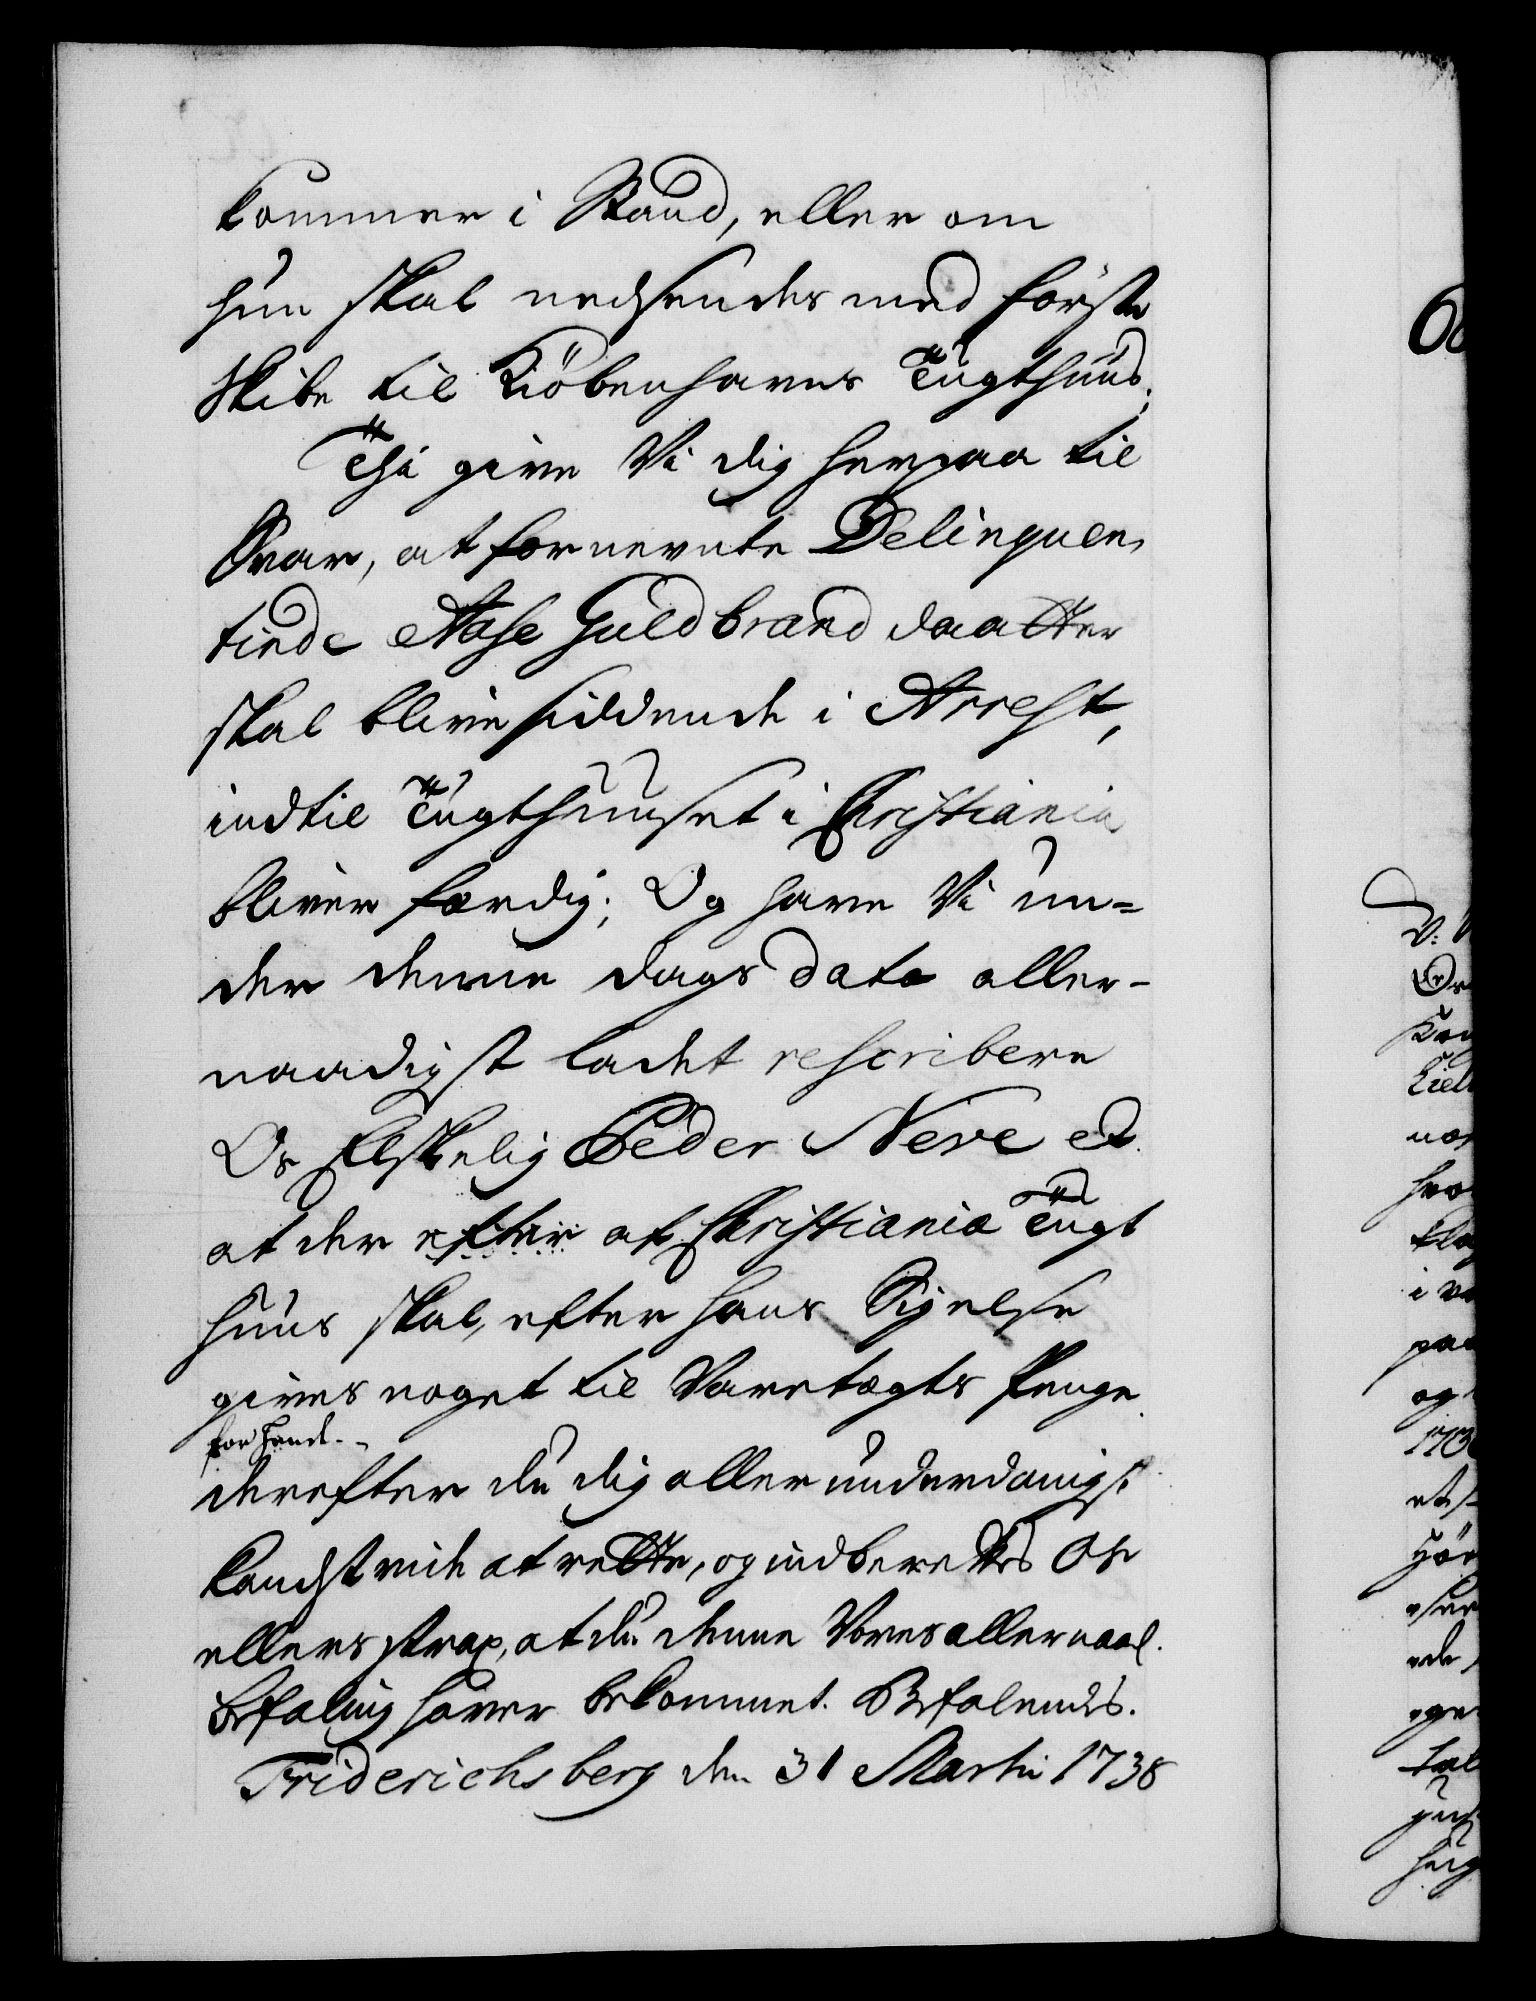 kommer i Stand, eller om
hun skal nedsendes med første
Skibe til Kiöbenhavns Tugthuus;
Thi give Vi dig herpaa til
Svar, at fornevnte Delinquen,
tinde Aase Guldbrand daatter
skal blive siddende i Arrest,
indtil Tugthuuset i Christiania
bliver færdig; Og have Vi un=
der denne dags dato aller-
naadigst ladet rescribere
Os Elskelig Peder Neve et
at der efter af Christiania Tugt
huus skal, efter hans Sigelse
gives noget til Varetægts Penge
for hende.
derefter du dig allerunderdanigst
kandst vide at rette, og indberettes Os
ellers strax, at du denne Vores allernaad.
Befaling haver bekommet. Befalendes.
Friderichsberg den 31 Martii 1738